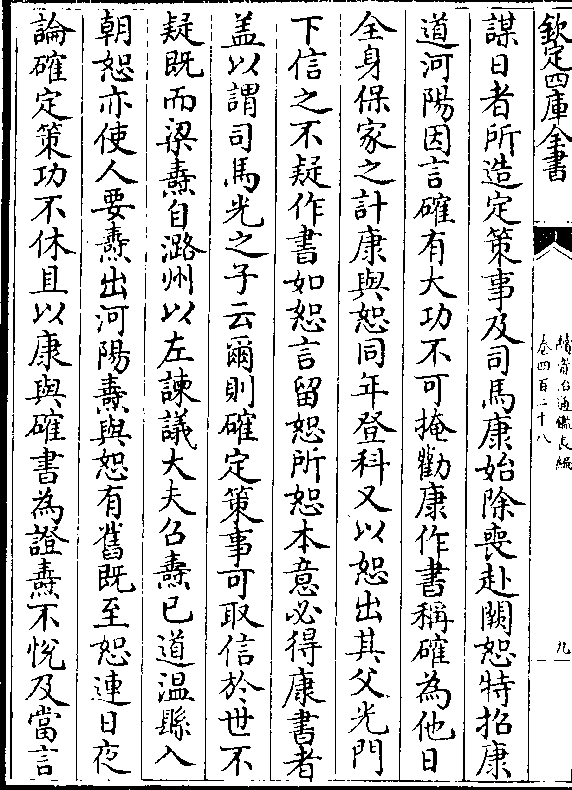 欽定四庫全書
續資治通鑑長編
卷四百二十八
九
謀日者所造定策事及司馬康始除喪赴闕恕特招康
道河陽因言確有大功不可掩勸康作書稱確為他日
全身保家之計康與恕同年登科又以恕出其父光門
下信之不疑作書如恕言留恕所恕本意必得康書者
盖以謂司馬光之子云爾則確定策事可取信於世不
疑既而梁燾自潞州以左諫議大夫召燾已道溫縣入
朝恕亦使人要燾出河陽燾與恕有舊既至恕連日夜
論確定策功不休且以康與確書為證燾不悅及當言